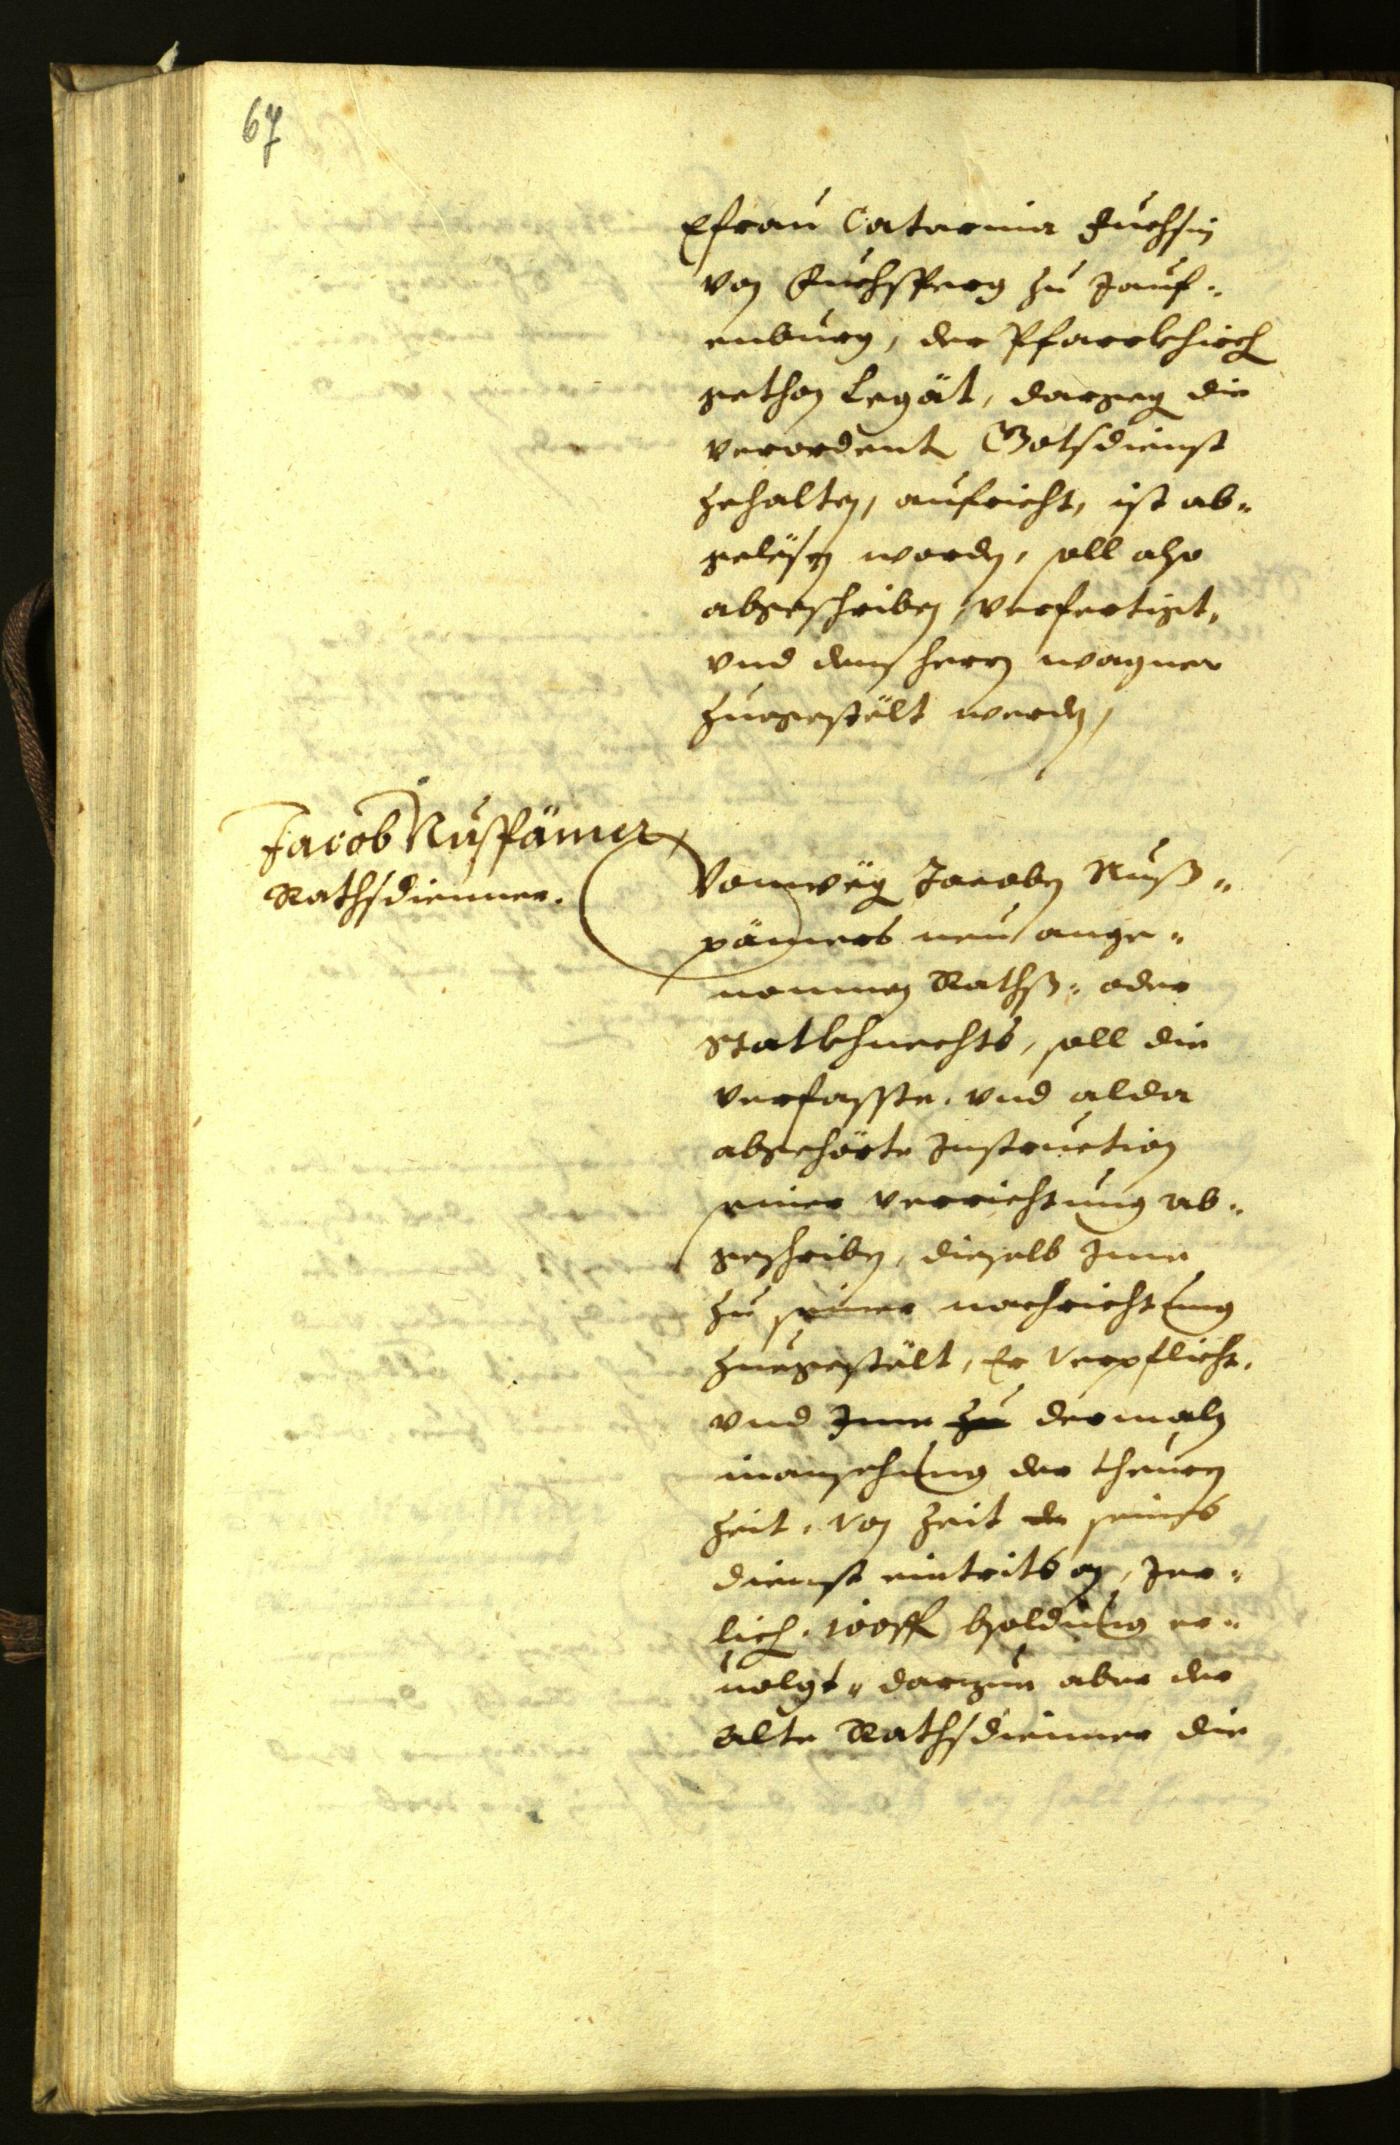 67
Efrau Catarina Fuchsin
von Fuchsperg zu Jauf-
enburg, der Pfarrkhirch
gethon Legät, dargeg die
verordent Gotsdienst
zehalten, aufricht, ist ab-
gelesen worden, soll also
abgeschriben, verfertigt,
vnd dem herrn wagner
zuegestölt werden,
Jacob Nuspämer
Rathsdienner.
Vonweg Jacoben Nuß-
pämers neu ange-
nommen Rathß- oder
Statkhnechts, soll die
verfasste, vnd alda
abgehörte Instruction
seiner verrichtung ab-
geschriben, dieselb Ime
zu seiner nachrichtung
zuegestölt, Er verpflicht,
vnd Ime zu dermaln
in ansehung der theuren
zeit, von zeit de seines
dienst eintrits an, Jer-
lich, 100 fl bsoldung er-
uolgt, darzue aber der
alte Rathsdienner die